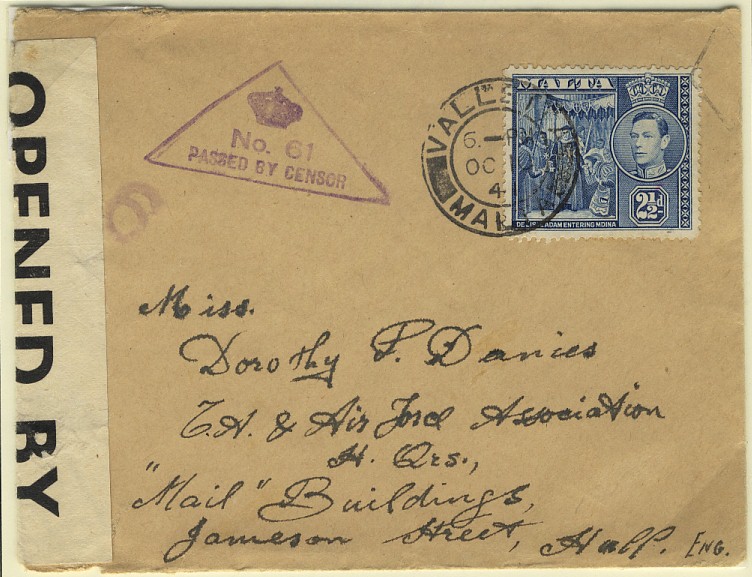 OPENED BY
No. 61
PASSED BY CENSOR
VALLE
6. — PM
OC
4
MAL
MALTA
DE L'ISLE ADAM ENTERING MDINA
2½d
Miss.
Dorothy P. Danies
T.A. & Air Force Association
H. Qrs.,
"Mail" Buildings,
Jameson Street, Hull. ENG.